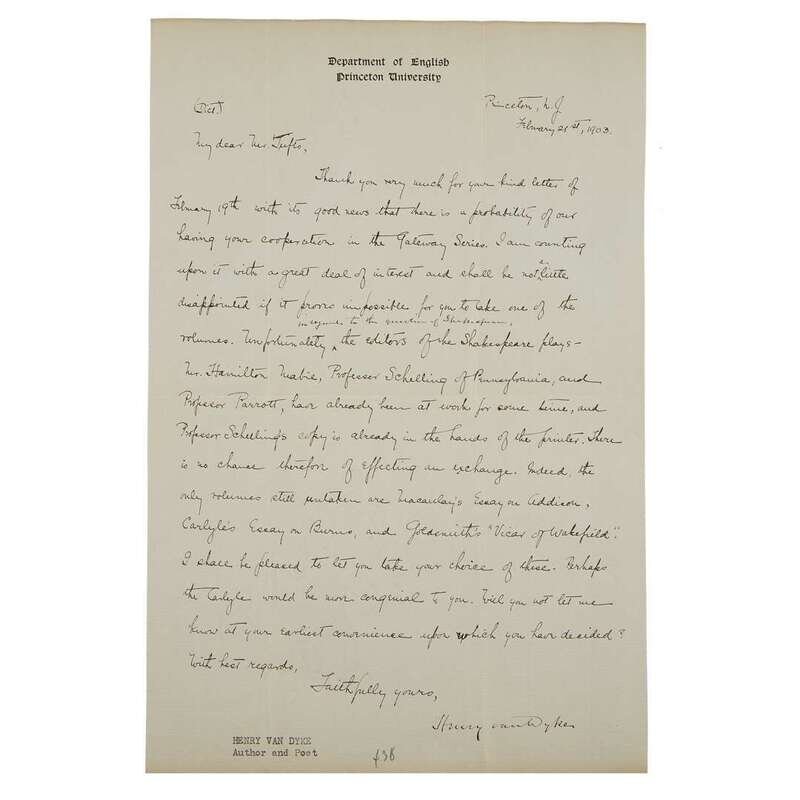 Department of English
Princeton University
(Dict.)
Princeton, N.J.
February 21st, 1903.
My dear Mr. Tufts,
Thank you very much for your kind letter of
February 19th with its good news that there is a probability of our
having your cooperation in the Gateway Series. I am counting
upon it with a great deal of interest and shall be not a little
disappointed if it proves impossible for you to take one of the
in regard to the question of Shakespeare,
volumes. Unfortunately ‸ the editors of the Shakespeare plays -
Mr. Hamilton Mabie, Professor Schelling of Pennsylvania, and
Professor Parrott, have already been at work for some time, and
Professor Schelling's copy is already in the hands of the printer. There
is no chance therefore of effecting an exchange. Indeed, the
only volumes still untaken are Macaulay's Essay on Addison,
Carlyle's Essay on Burns, and Goldsmith's "Vicar of Wakefield".
I shall be pleased to let you take your choice of these. Perhaps
the Carlyle would be more congenial to you. Will you not let me
know at your earliest convenience upon which you have decided?
With best regards,
Faithfully yours,
Henry van Dyke
HENRY VAN DYKE
Author and Poet